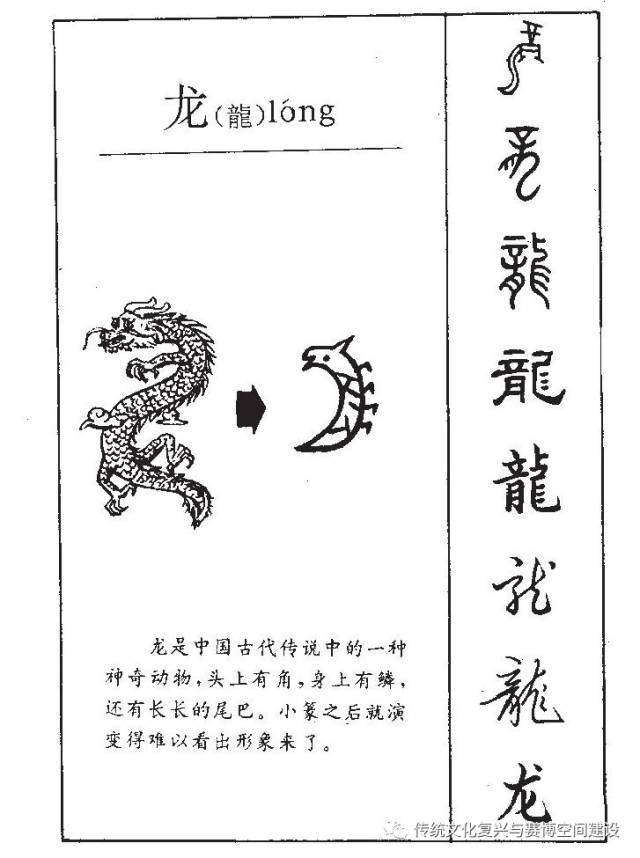 龙(龍)lóng
龙是中国古代传说中的一种
神奇动物,头上有角,身上有鳞,
还有长长的尾巴。小篆之后就演
变得难以看出形象来了。
龍
龍
龍
龍
龍
龙
传统文化复兴与赛博空间建设